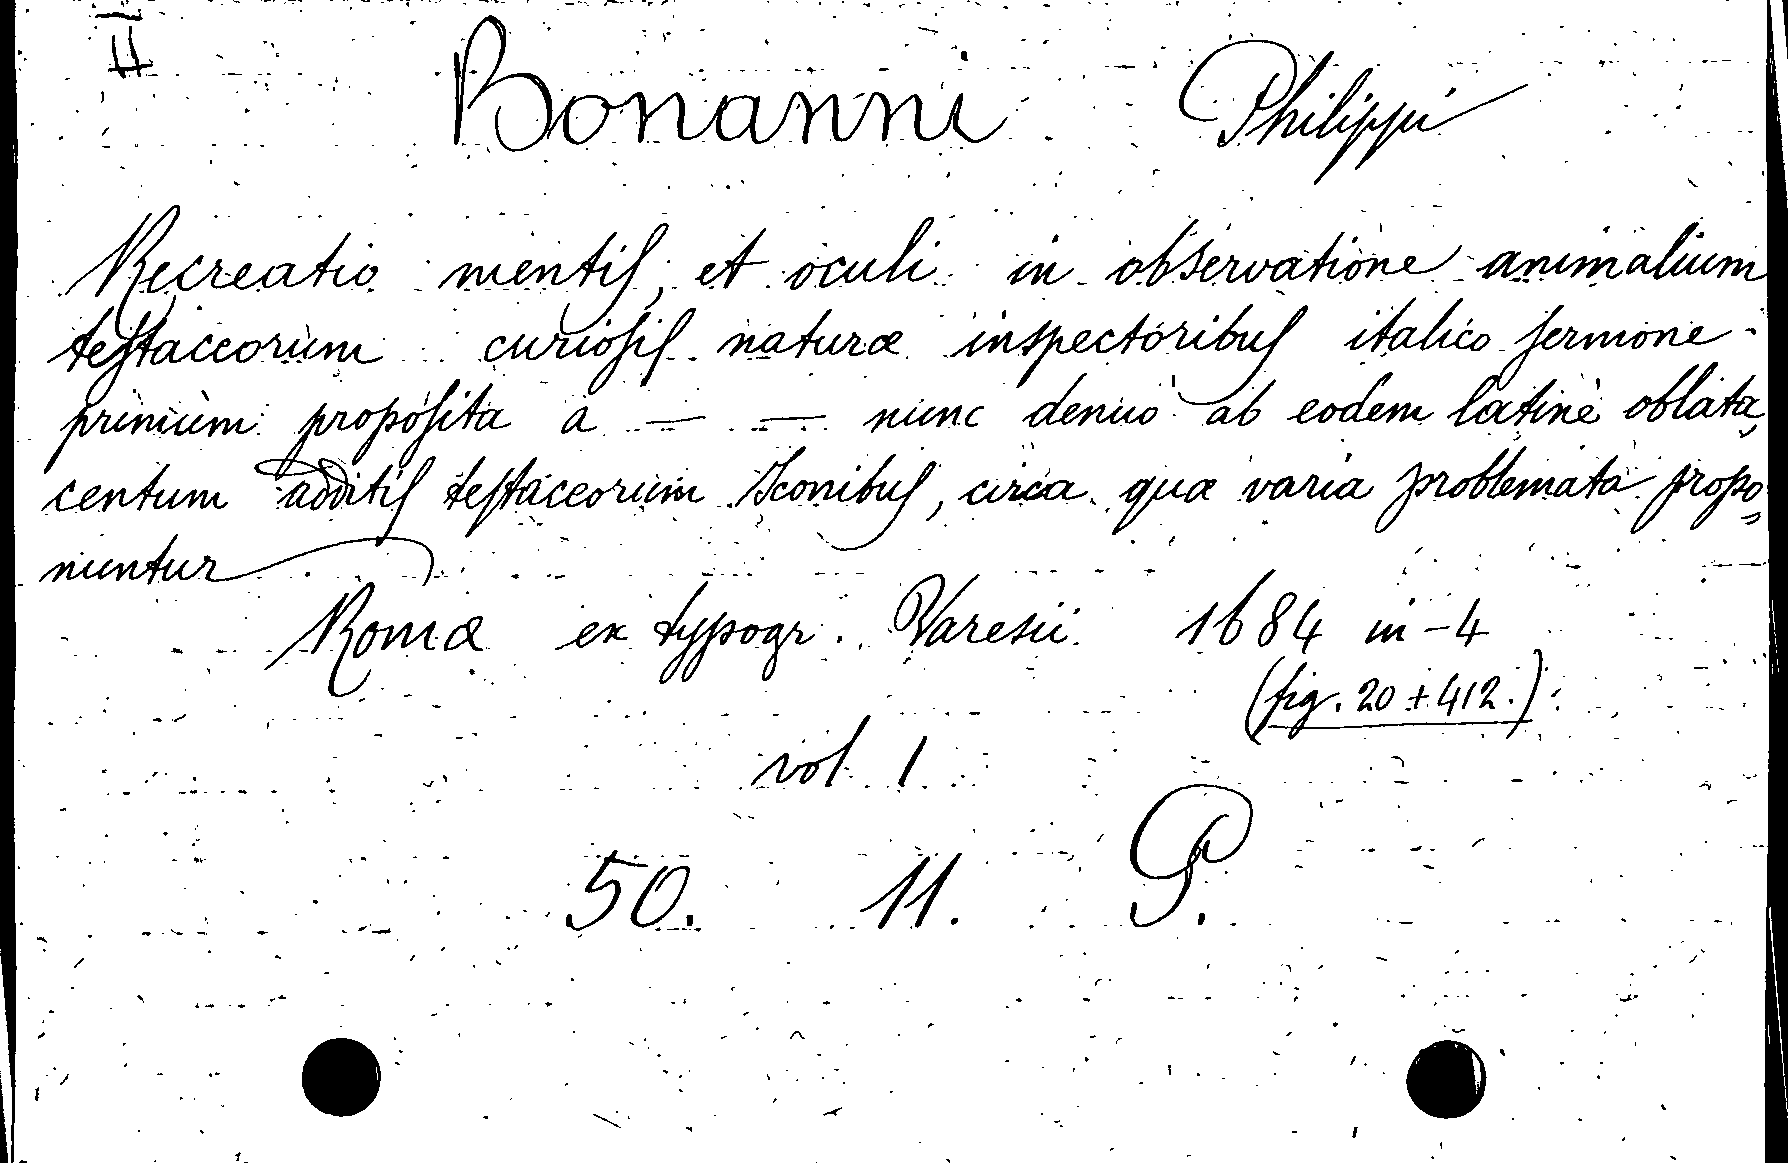 Bonanni Philippi
Recreatio mentis, et oculi in observatione animalium
testaceorum curiosis naturæ inspectoribus italico sermone
primum proposita a — — nunc denuo ab eodem latinè oblata,
centum additis testaceorum Iconibus, circa quæ varia problemata propo
nuntur
Romæ ex typogr. Varesii 1684 in-4
(fig. 20 + 412.)
vol 1
50. 11. P.